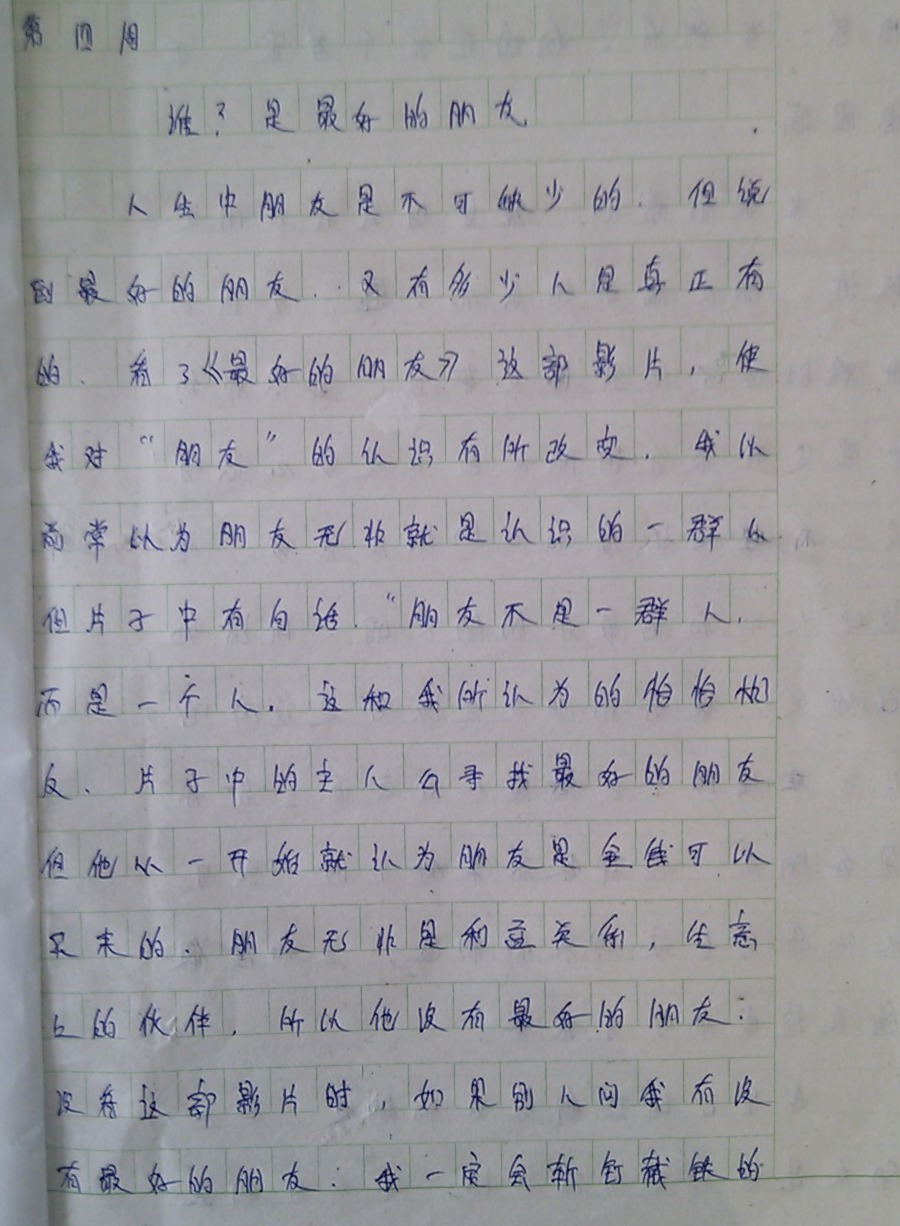 第四周
谁？是最好的朋友
人生中朋友是不可缺少的．但说
到最好的朋友．．又有多少人是真正有
的．看了《最好的朋友》这部影片，使
我对“朋友”的认识有所改变．我以
前常以为朋友无非就是认识的一群人
但片子中有句话．“朋友不是一群人．
而是一个人．这和我所认为的恰恰相
反．片子中的主人公寻找最好的朋友
但他从一开始就认为朋友是金钱可以
买来的．朋友无非是利益关系，生意
上的伙伴．所以他没有最好的朋友．
没看这部影片时，如果别人问我有没
有最好的朋友：我一定会斩钉截铁的